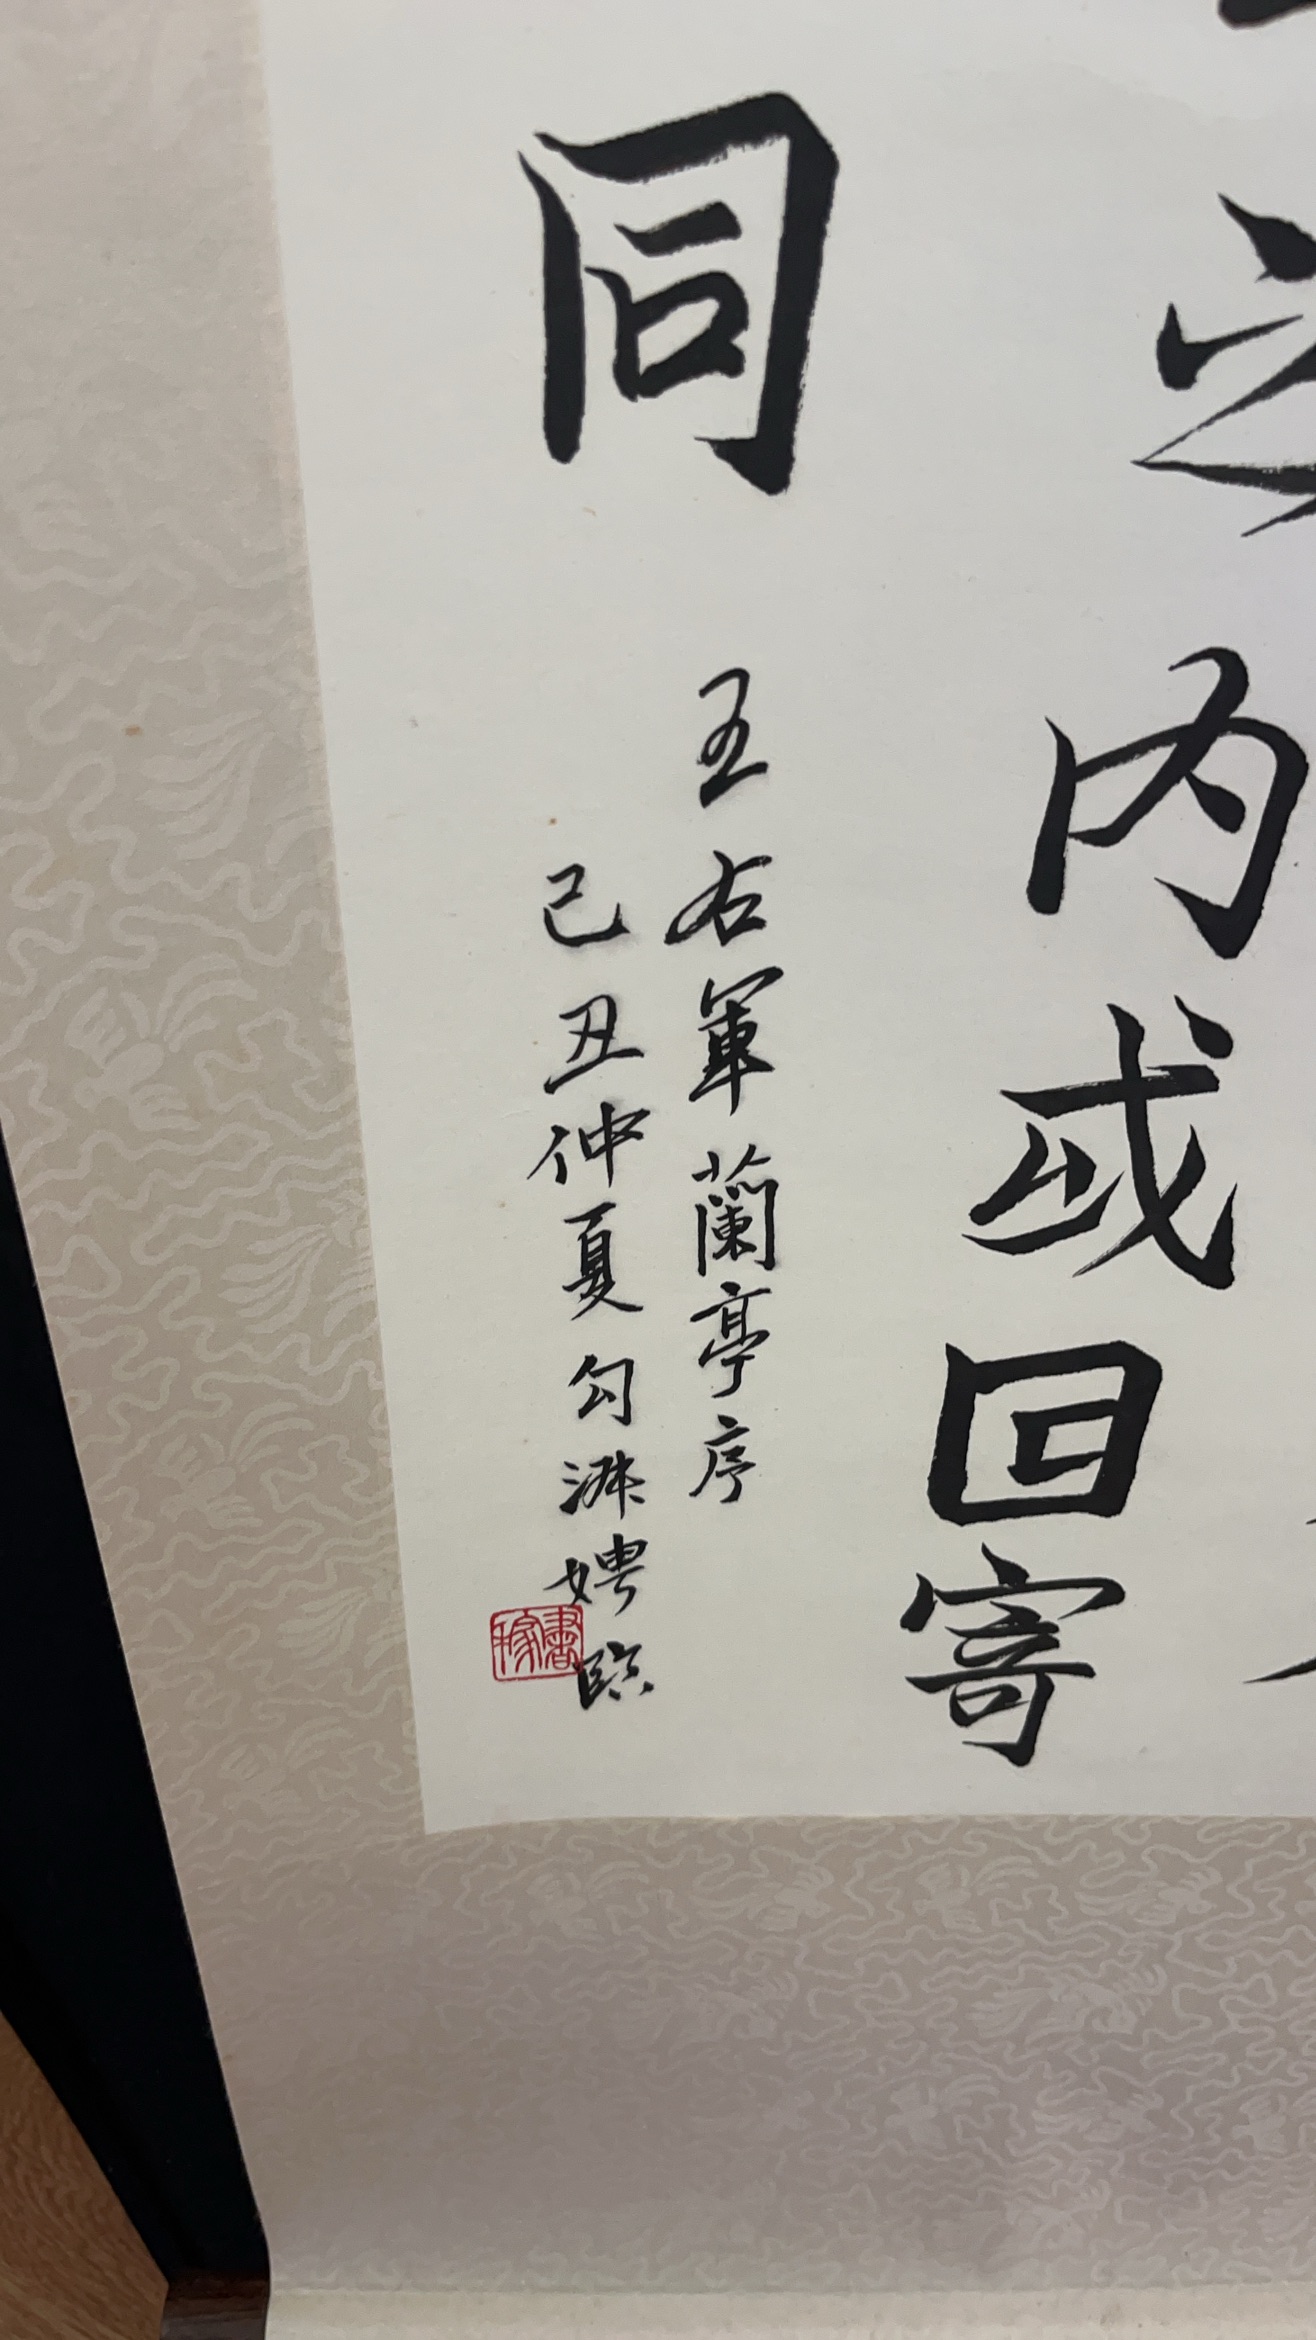 之内或因寄
同
王右軍蘭亭序
己丑仲夏勾淑娉臨